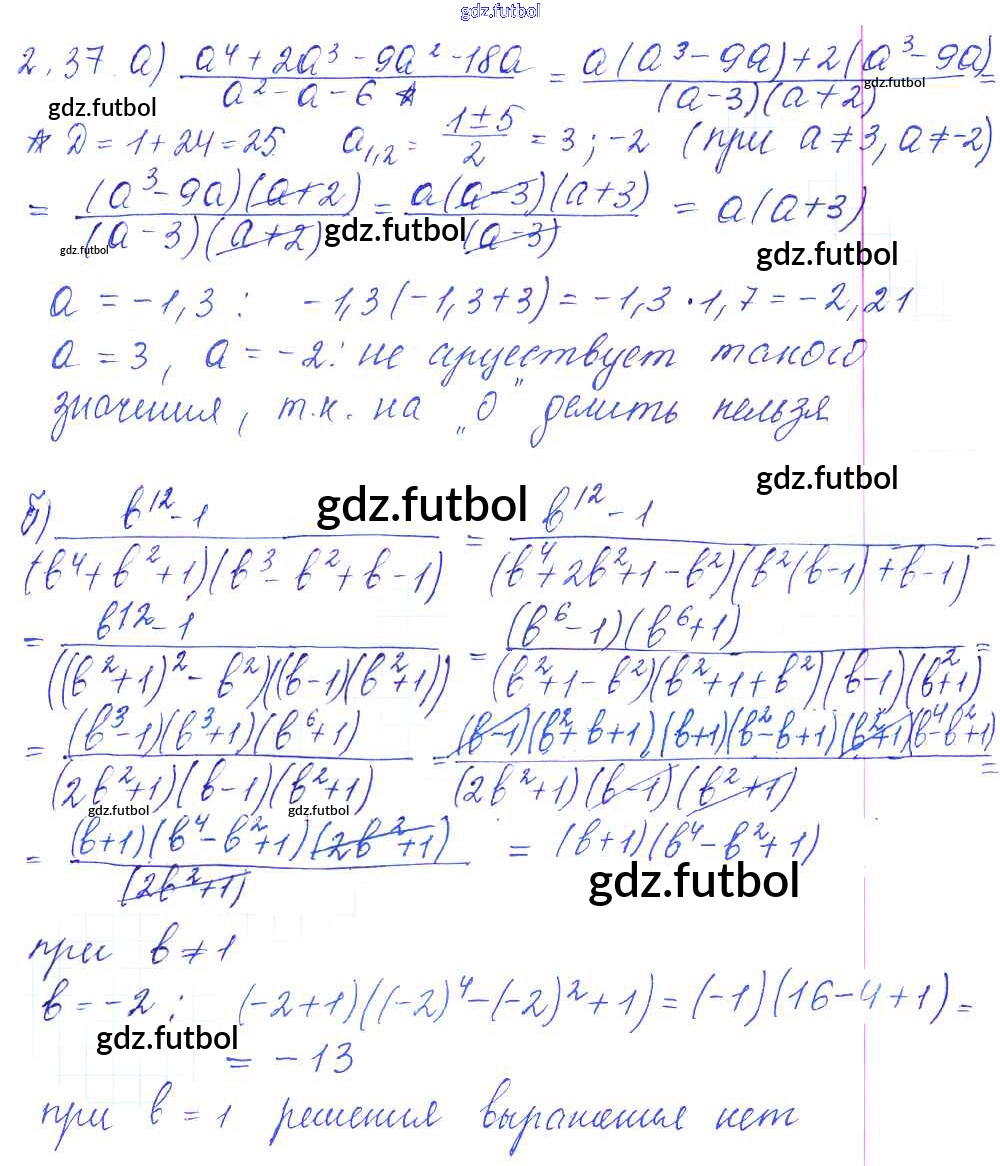 gdz.futbol
2.37 а) (a⁴ + 2a³ - 9a² - 18a)/(a² - a - 6 *) = (a(a³ - 9a) + 2(a³ - 9a))/((a-3)(a+2)) =
gdz.futbol gdz.futbol
* D = 1 + 24 = 25 a₁,₂ = (1 ± 5)/2 = 3 ; -2 (при a ≠ 3, a ≠ -2)
= ((a³ - 9a)(a+2))/((a-3)(a+2)) = (a(a-3)(a+3))/(a-3) = a(a+3)
gdz.futbol gdz.futbol gdz.futbol
a = -1,3 : -1,3(-1,3+3) = -1,3 · 1,7 = -2,21
a = 3, a = -2: не существует такого
значения, т.к. на „0" делить нельзя
gdz.futbol
б) (b¹² - 1)/((b⁴ + b² + 1)(b³ - b² + b - 1)) = (b¹² - 1)/((b⁴ + 2b² + 1 - b²)(b²(b-1) + b - 1)) =
gdz.futbol
= (b¹² - 1)/(((b²+1)² - b²)((b-1)(b²+1))) = ((b⁶ - 1)(b⁶ + 1))/((b²+1-b²)(b²+1+b²)(b-1)(b²+1)) =
= ((b³-1)(b³+1)(b⁶+1))/((2b²+1)(b-1)(b²+1)) = ((b-1)(b²+b+1)(b+1)(b²-b+1)(b²+1)(b⁴-b²+1))/((2b²+1)(b-1)(b²+1)) =
gdz.futbol gdz.futbol
= ((b+1)(b⁴-b²+1)(2b²+1))/(2b²+1) = (b+1)(b⁴-b²+1)
gdz.futbol
при b ≠ 1
b = -2 ; (-2+1)((-2)⁴-(-2)²+1) = (-1)(16-4+1) =
gdz.futbol
= -13
при b = 1 решения выражения нет